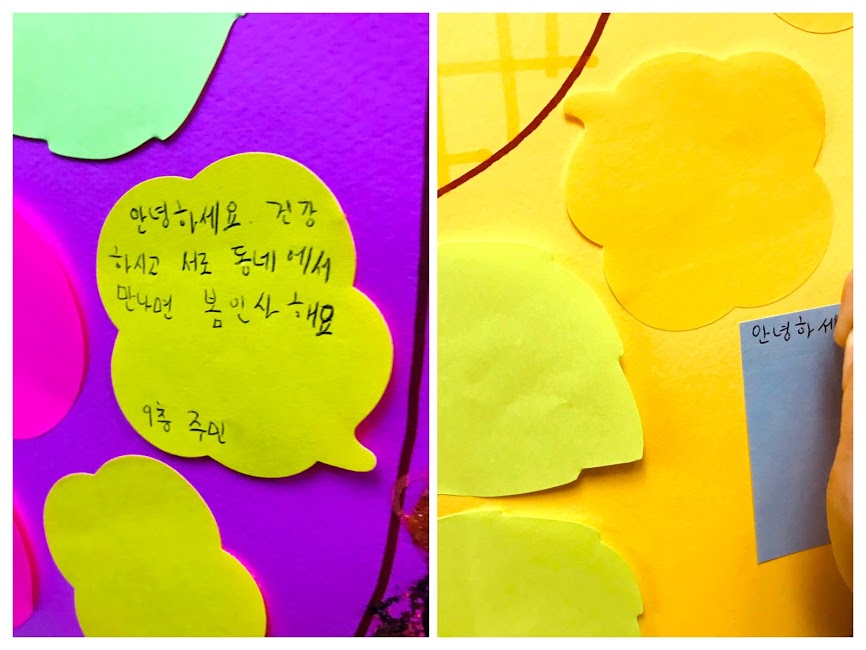 안녕하세요. 건강
하시고 서로 동네에서
만나면 봄인사해요
9층 주민
안녕하세